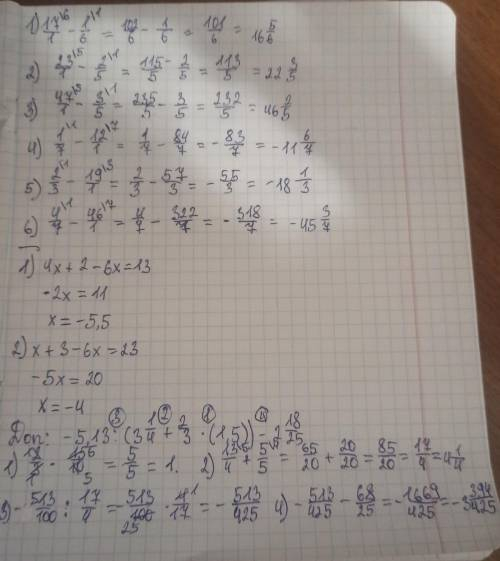 1) 17\6/1 - 1\1/6 = 102/6 - 1/6 = 101/6 = 16 5/6
2) 23\5/1 - 2\1/5 = 115/5 - 2/5 = 113/5 = 22 3/5
3) 47\5/1 - 3\1/5 = 235/5 - 3/5 = 232/5 = 46 2/5
4) 1\1/7 - 12\7/1 = 1/7 - 84/7 = - 83/7 = -11 6/7
5) 2\1/3 - 19\3/1 = 2/3 - 57/3 = - 55/3 = -18 1/3
6) 4\1/7 - 46\7/1 = 4/7 - 322/7 = - 318/7 = -45 3/7
1) 4x + 2 - 6x = 13
-2x = 11
x = -5,5
2) x + 3 - 6x = 23
-5x = 20
x = -4
Доп: -5,13 : (3 1/4 + 2/3 · (1,5)) - 2 18/25
1) · = 5/5 = 1. 2) 13/4 + 5/5 = 65/20 + 20/20 = 85/20 = 17/4 = 4 1/4
3) - 513/100 : 17/4 = - 513/100 · 4/17 = - 513/425 4) - 513/425 - 68/25 = - 1669/425 = -3 394/425